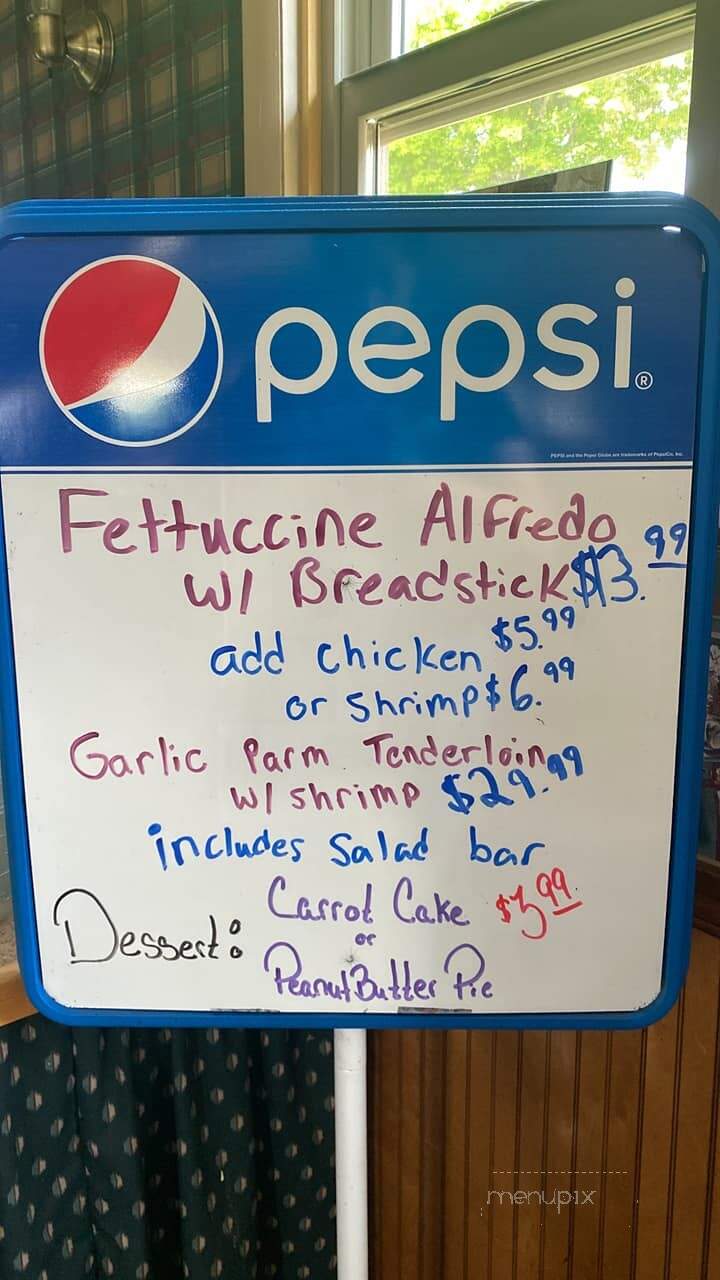 pepsi®
PEPSI and the Pepsi Globe are trademarks of PepsiCo, Inc.
Fettuccine Alfredo
w/ Breadstick $13.99
add chicken $5.99
or shrimp $6.99
Garlic Parm Tenderloin
w/ shrimp $29.99
includes salad bar
Dessert: Carrot Cake $3.99
or
Peanut Butter Pie
menupix